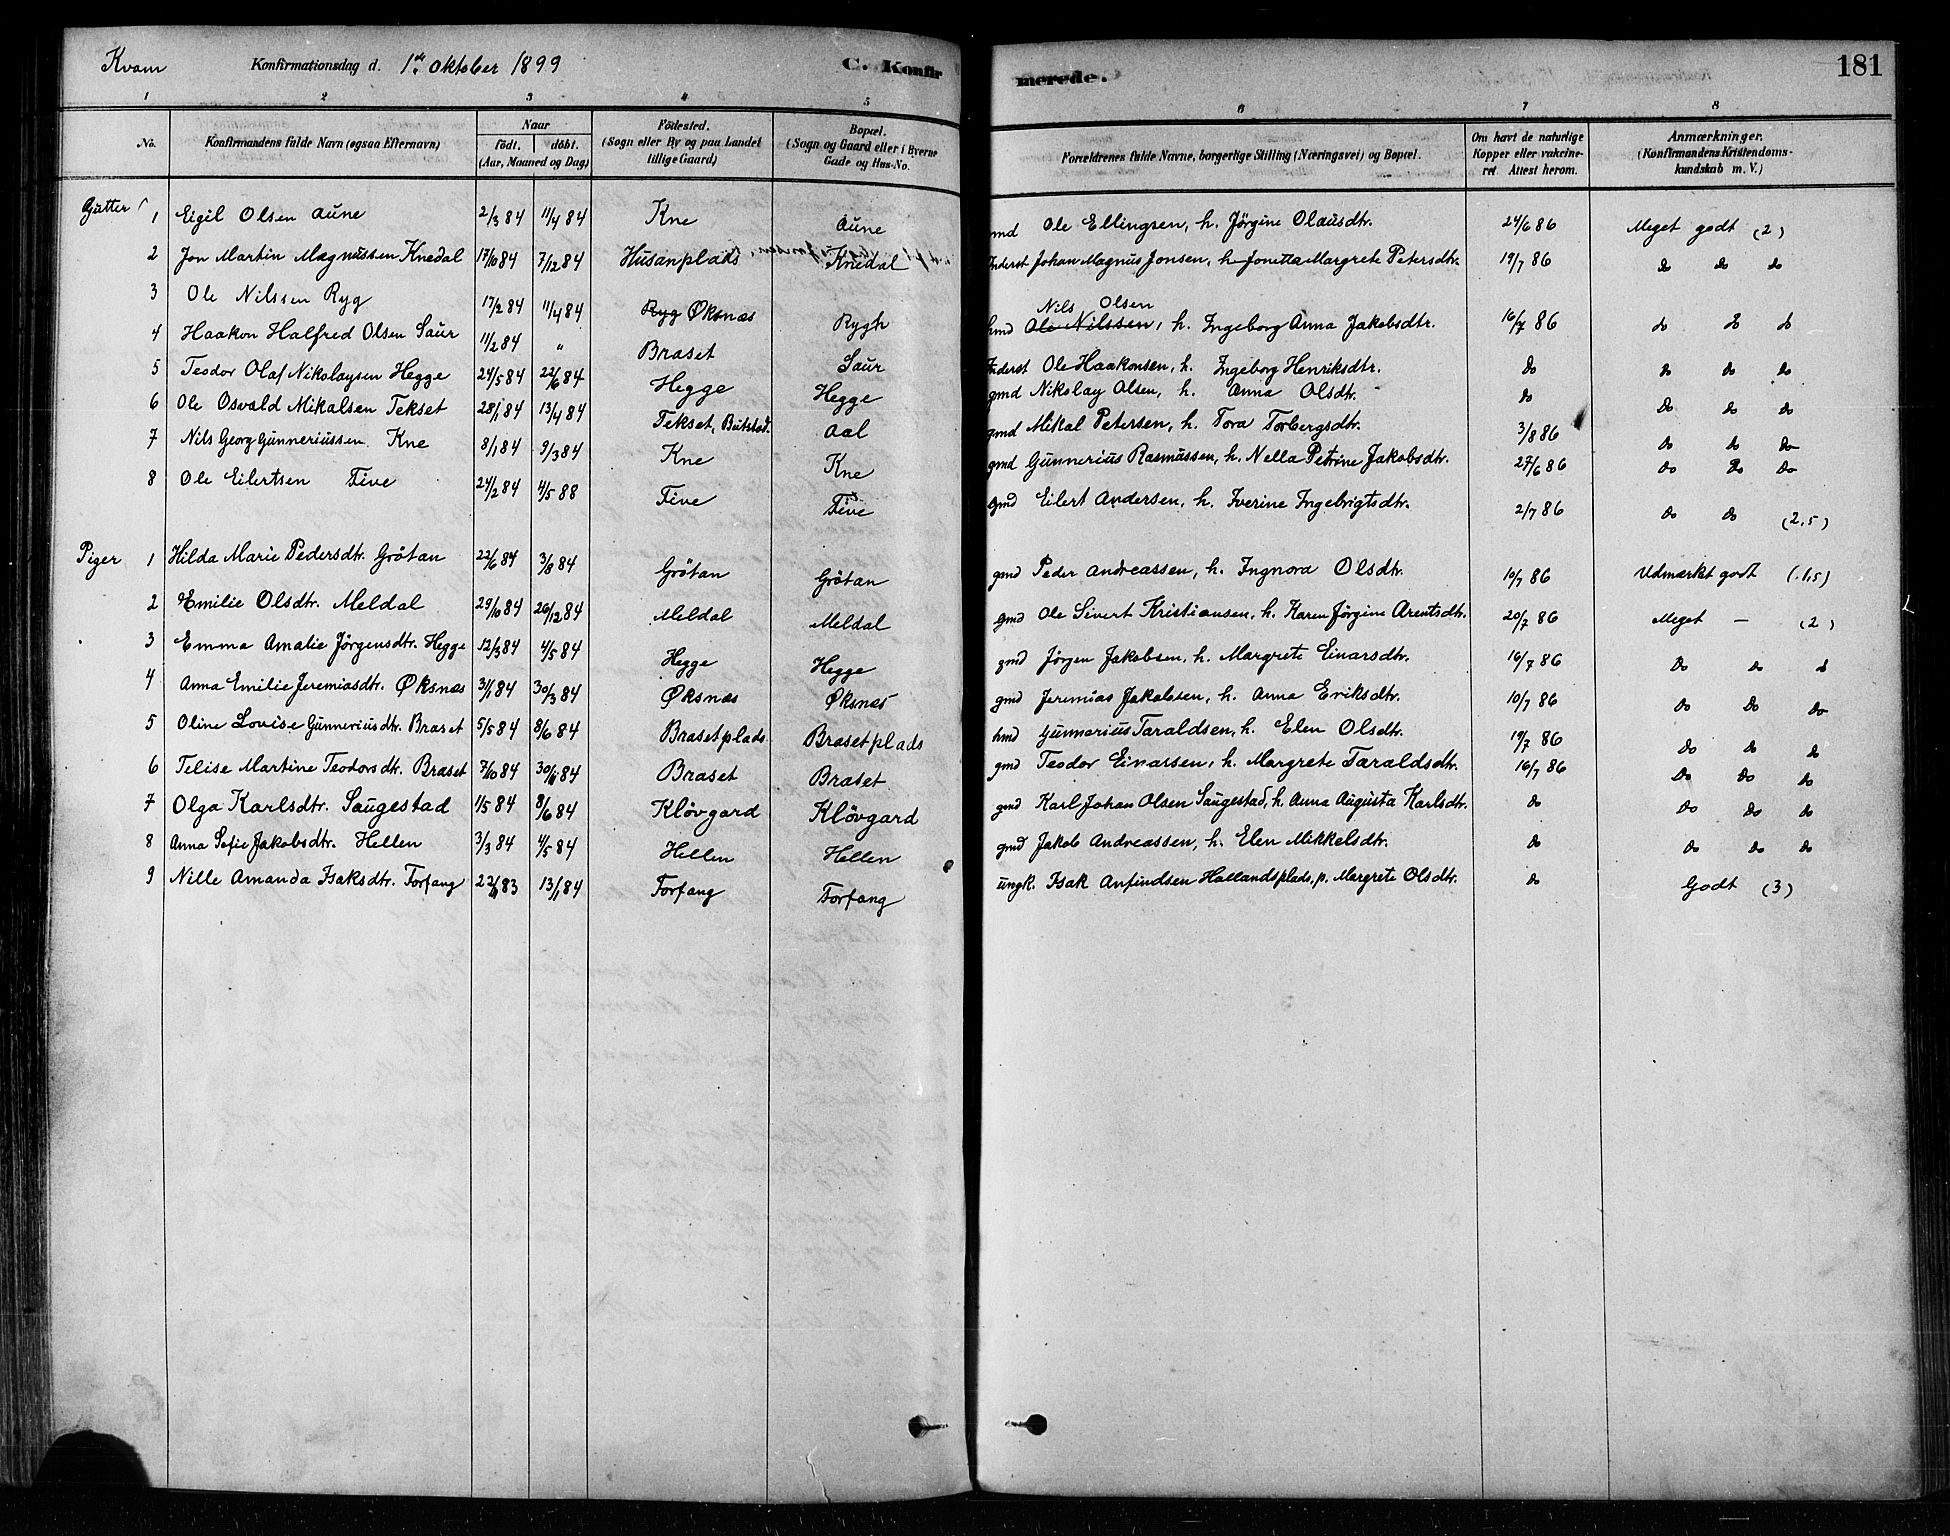 Kvam Konfirmationsdag d. 1ste Oktober 1899 C. Konfirmerede. 181
1 2 3 4 5 6 7 8
No. Konfirmandens fulde Navn (ogsaa Efternavn) Naar født. døbt. (Aar, Maaned og Dag) Fødested. (Sogn eller By og paa Landet tillige Gaard) Bopæl. (Sogn og Gaard eller i Byerne Gade og Hus-No. Forældrenes fulde Navne, borgerlige Stilling (Næringsvei) og Bopæl. Om havt de naturlige Kopper eller vakcineret. Attest herom. Anmærkninger. (Konfirmandens Kristendomskundskab m. V.)
Gutter 1 Eigil Olsen Aune 2/3 84 11/4 84 Kne Aune gmd Ole Ellingsen, h. Jörgine Olausdtr. 24/6 86 Meget godt (2)
2 Jon Martin Magnussen Knedal 17/10 84 7/12 84 Husanplads Knedal Inderst Johan Magnus Jonsen, h. Jonetta Margrete Petersdtr. 19/7 86 do do do
3 Ole Nilssen Ryg 17/2 84 11/4 84 Ryg Øksnæs Rygh hmd Ole Nilssen, Nils Olsen h. Ingeborg Anna Jakobsdtr. 16/7 86 do do do
4 Haakon Halfred Olsen Saur 11/2 84 " Braset Saur Inderst Ole Haakonsen, h. Ingeborg Henriksdtr. do do do do
5 Teodor Olaf Nikolaysen Hegge 24/5 84 22/6 84 Hegge Hegge gmd Nikolay Olsen, h. Anna Olsdtr. do do do do
6 Ole Osvald Mikalsen Tekset 28/1 84 13/4 84 Tekset, Butstad. Aal gmd Mikal Petersen, h. Tora Torbergsdtr. 3/8 86 do do do
7 Nils Georg Gunneriussen Kne 8/1 84 9/3 84 Kne Kne gmd Gunnerius Rasmussen, h. Nella Petrine Jakobsdtr. 27/6 86 do do do
8 Ole Eilertsen Five 24/2 84 4/5 88 Five Five gmd Eilert Andersen, h. Iverine Ingebrigtsdtr. 2/7 86 do do (2,5)
Piger 1 Hilda Marie Pedersdtr. Grötan 22/6 84 3/8 84 Grötan Grötan gmd Peder Andreassen, h. Ingnora Olsdtr. 10/7 86 Udmærket godt (1,5)
2 Emilie Olsdtr. Meldal 29/10 84 26/12 84 Meldal Meldal gmd Ole Sivert Kristiansen, h. Karen Jörgine Arentsdtr. 20/7 86 Meget — (2)
3 Emma Amalie Jörgensdtr. Hegge 12/3 84 4/5 84 Hegge Hegge gmd Jörgen Jakobsen, h. Margrete Einarsdtr. 16/7 86 do do d
4 Anna Emilie Jeremiasdtr. Øksnæs 31/1 84 30/3 84 Øksnæs Øksnæs gmd Jeremias Jakobsen, h. Anna Eriksdtr. 10/7 86 do do do
5 Oline Lovise Gunneriusdtr. Braset 5/5 84 8/6 84 Brasetplads Brasetplads hmd Gunnerius Taraldsen, h. Elen Olsdtr. 19/7 86 do do do
6 Telise Martine Teodorsdtr. Braset 7/10 84 30/11 84 Braset Braset gmd Teodor Einarsen, h. Margrete Taraldsdtr. 16/7 86 do do do
7 Olga Karlsdtr. Saugestad 1/5 84 8/6 84 Klövgard Klövgard gmd Karl Johan Olsen Saugestad, h. Anna Augusta Karlsdtr. do do do do
8 Anna Sofie Jakobsdtr. Hellen 3/3 84 4/5 84 Hellen Hellen gmd Jakob Andreassen, h. Elen Mikkelsdtr. do do do do
9 Nille Amanda Isaksdtr. Torfang 22/11 83 13/1 84 Torfang Torfang ungk. Isak Anfindsen Hallandsplads, p. Margrete Olsdtr. do Godt (3)